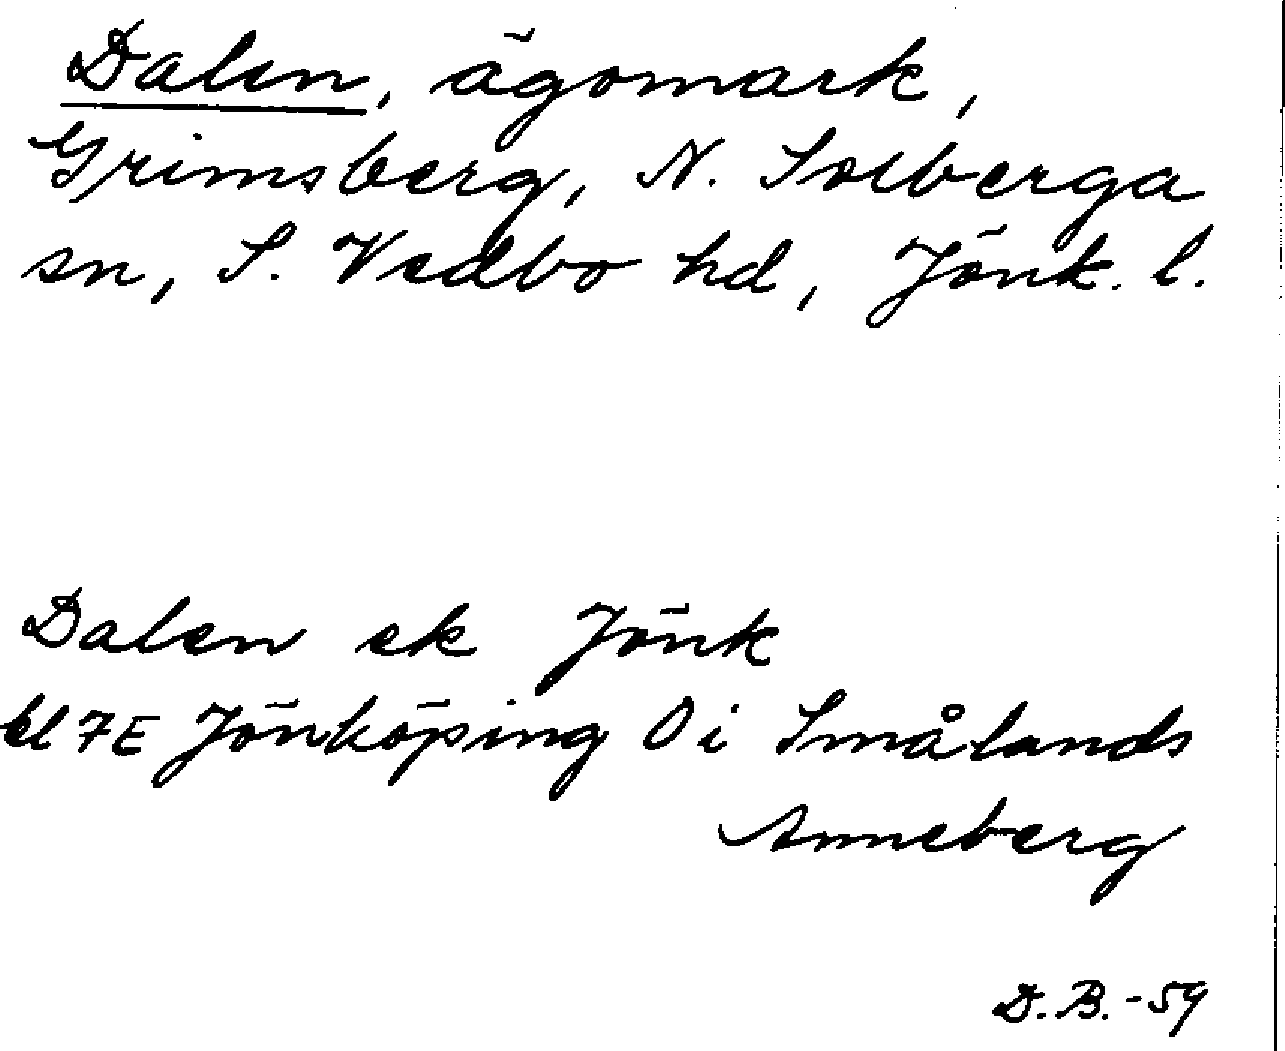 Dalen, ägomark,
Grimsberg, N. Solberga
sn, S. Vedbo hd, Jönk. l.
Dalen ek Jönk
bl 7E Jönköping O i Smålands
Anneberg
D.B. -59